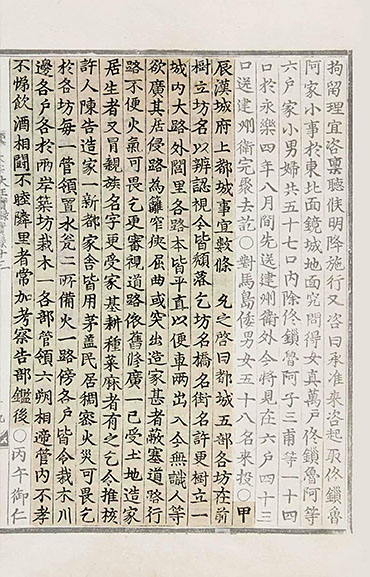 拘留理宜咨稟聽候明降施行又咨曰承准來咨起取佟鎖魯
阿家小事於東北面鏡城地面究問得女真萬戶佟鎖魯阿等
六戶家小男婦共五十七口內除佟鎖魯阿子三甫等一十四
口於永樂四年八月間先送建州衛外今將見在六戶四十三
口送建州衛完聚去訖○對馬島倭男女五十八名來投○甲
辰漢城府上都城事宜數條　允之啓曰都城五部各坊在前
樹立坊名以辨認視今皆頹落乞坊名橋名街名許更樹立一
城內大路外閭里各路本皆平直以便車兩出入今無識人等
欲廣其居侵路為籬窄狹屈曲或突出造家甚者蔽塞道路行
路不便火氣可畏乞更審視道路依舊修廣一已受土地造家
居生者又冒親族名字更受家基耕種菜麻者有之乞令推核
許人陳告造家一新都家舍皆用茅盖民居稠密火災可畏乞
於各坊每一管領置水瓮二所備火一路傍各戶皆令栽木川
邊各戶各於兩岸築坊栽木一各部管領六朔相遞管內不孝
不悌飲酒相鬪不睦隣里者常加考察告部鑑後○丙午御仁